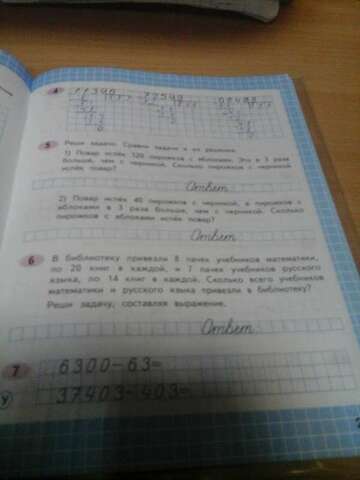 4
5
Реши задачи. Сравни задачи и их решения.
1) Повар испёк 120 пирожков с яблоками. Это в 3 раза
больше, чем с черникой. Сколько пирожков с черникой
испёк повар?
Ответ
2) Повар испёк 40 пирожков с черникой, а пирожков с
яблоками в 3 раза больше, чем с черникой. Сколько
пирожков с яблоками испёк повар?
Ответ
6
В библиотеку привезли 8 пачек учебников математики,
по 20 книг в каждой, и 7 пачек учебников русского
языка, по 14 книг в каждой. Сколько всего учебников
математики и русского языка привезли в библиотеку?
Реши задачу, составляя выражение.
Ответ
7
6300-63=
37403-403=